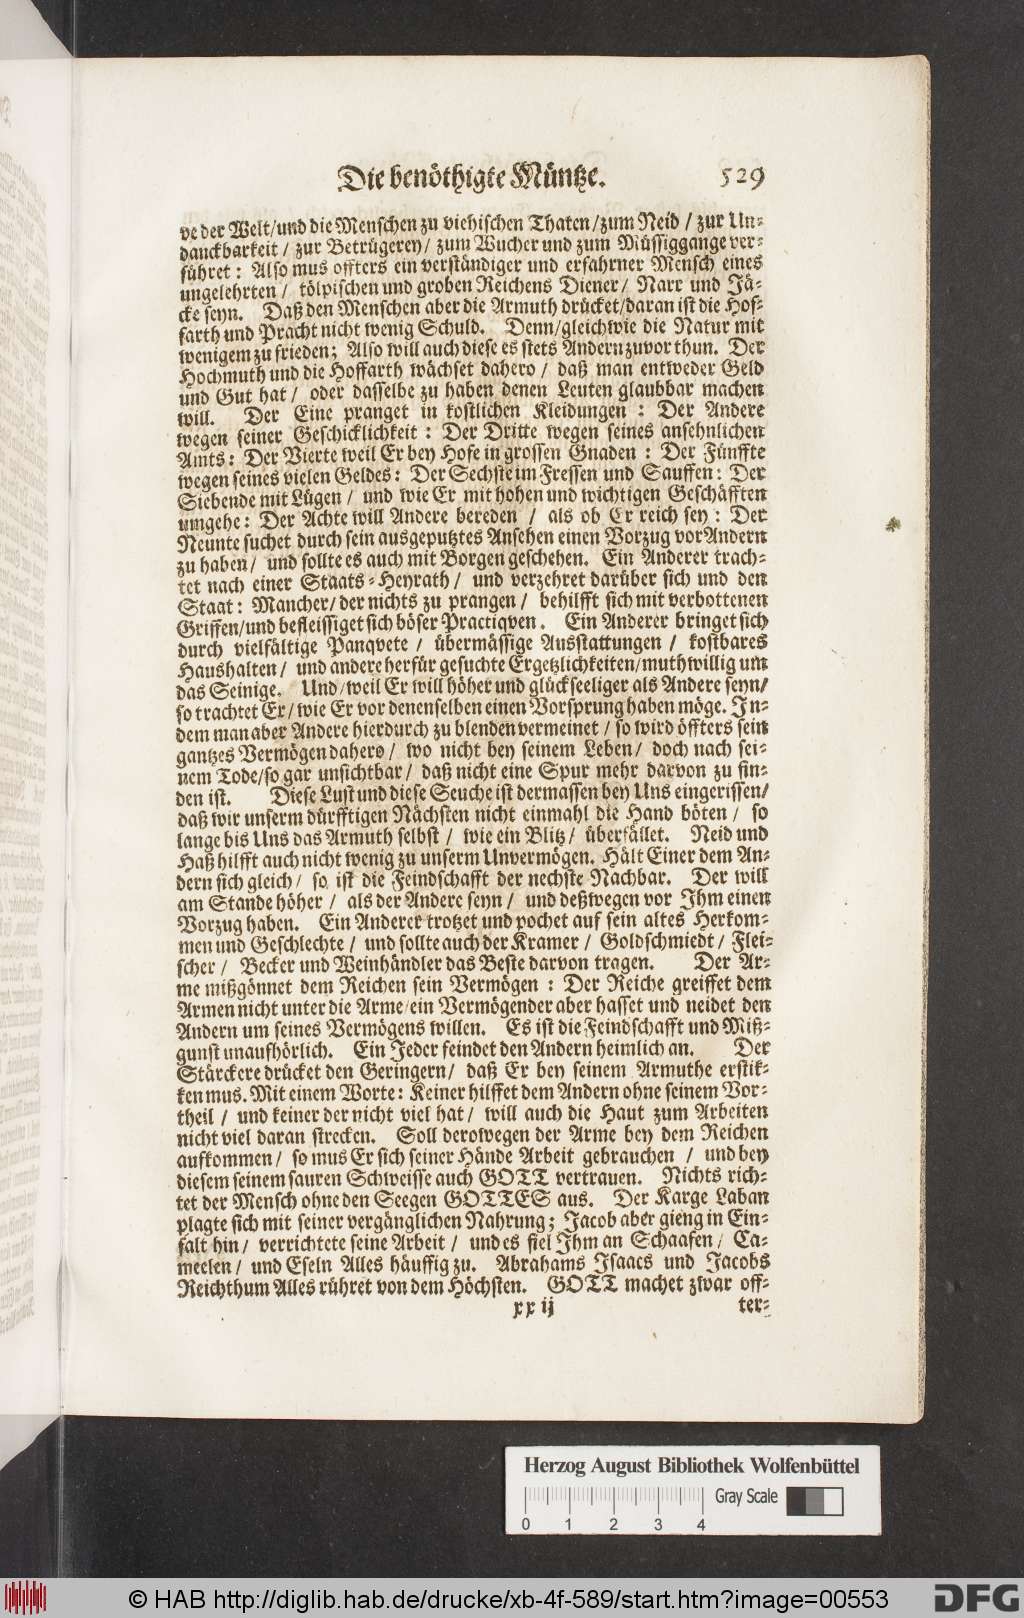 Die benöthigte Müntze. 529
ve der Welt/und die Menschen zu viehischen Thaten/zum Neid / zur Un-
danckbarkeit / zur Betrügerey/ zum Wucher und zum Müssiggange ver-
führet : Also mus offters ein verständiger und erfahrner Mensch eines
ungelehrten / tölpischen und groben Reichens Diener/ Narr und Jä-
cke seyn. Daß den Menschen aber die Armuth drücket/daran ist die Hof-
farth und Pracht nicht wenig Schuld. Denn/gleichwie die Natur mit
wenigem zu frieden; Also will auch diese es stets Andern zuvor thun. Der
Hochmuth und die Hoffarth wächset dahero / daß man entweder Geld
und Gut hat / oder dasselbe zu haben denen Leuten glaubbar machen
will. Der Eine pranget in kostlichen Kleidungen : Der Andere
wegen seiner Geschicklichkeit : Der Dritte wegen seines ansehnlichen
Amts : Der Vierte weil Er bey Hofe in grossen Gnaden : Der Fünffte
wegen seines vielen Geldes : Der Sechste im Fressen und Sauffen : Der
Siebende mit Lügen / und wie Er mit hohen und wichtigen Geschäfften
umgehe : Der Achte will Andere bereden / als ob Er reich sey : Der
Neunte suchet durch sein ausgeputztes Ansehen einen Vorzug vor Andern
zu haben/ und sollte es auch mit Borgen geschehen. Ein Anderer trach-
tet nach einer Staats-Heyrath / und verzehret darüber sich und den
Staat : Mancher/ der nichts zu prangen / behilfft sich mit verbottenen
Griffen/und befleissiget sich böser Practiqven. Ein Anderer bringet sich
durch vielfältige Panqvete / übermässige Ausstattungen / kostbares
Haushalten / und andere herfür gesuchte Ergetzlichkeiten/muthwillig um
das Seinige. Und/weil Er will höher und glückseeliger als Andere seyn/
so trachtet Er/ wie Er vor denenselben einen Vorsprung haben möge. In-
dem man aber Andere hierdurch zu blenden vermeinet / so wird öffters sein
gantzes Vermögen dahero / wo nicht bey seinem Leben / doch nach sei-
nem Tode/so gar unsichtbar / daß nicht eine Spur mehr darvon zu fin-
den ist. Diese Lust und diese Seuche ist dermassen bey Uns eingerissen/
daß wir unserm dürfftigen Nächsten nicht einmahl die Hand böten / so
lange bis Uns das Armuth selbst / wie ein Blitz / überfället. Neid und
Haß hilfft auch nicht wenig zu unserm Unvermögen. Hält Einer dem An-
dern sich gleich / so ist die Feindschafft der nechste Nachbar. Der will
am Stande höher / als der Andere seyn / und deßwegen vor Ihm einen
Vorzug haben. Ein Anderer trotzet und pochet auf sein altes Herkom-
men und Geschlechte / und sollte auch der Kramer / Goldschmiedt / Flei-
scher / Becker und Weinhändler das Beste darvon tragen. Der Ar-
me mißgönnet dem Reichen sein Vermögen : Der Reiche greiffet dem
Armen nicht unter die Arme/ein Vermögender aber hasset und neidet den
Andern um seines Vermögens willen. Es ist die Feindschafft und Miß-
gunst unaufhörlich. Ein Jeder feindet den Andern heimlich an. Der
Stärckere drücket den Geringern/ daß Er bey seinem Armuthe erstik-
ken mus. Mit einem Worte : Keiner hilffet dem Andern ohne seinem Vor-
theil / und keiner der nicht viel hat / will auch die Haut zum Arbeiten
nicht viel daran strecken. Soll derowegen der Arme bey dem Reichen
aufkommen / so mus Er sich seiner Hände Arbeit gebrauchen / und bey
diesem seinem sauren Schweisse auch GOTT vertrauen. Nichts rich-
tet der Mensch ohne den Seegen GOTTES aus. Der Karge Laban
plagte sich mit seiner vergänglichen Nahrung; Jacob aber gieng in Ein-
falt hin / verrichtete seine Arbeit / und es fiel Ihm an Schaafen / Ca-
meelen / und Eseln Alles häuffig zu. Abrahams Isaacs und Jacobs
Reichthum Alles rühret von dem Höchsten. GOTT machet zwar off-
xx ij ter-
Herzog August Bibliothek Wolfenbüttel
Gray Scale
0 1 2 3 4
© HAB http://diglib.hab.de/drucke/xb-4f-589/start.htm?image=00553 DFG